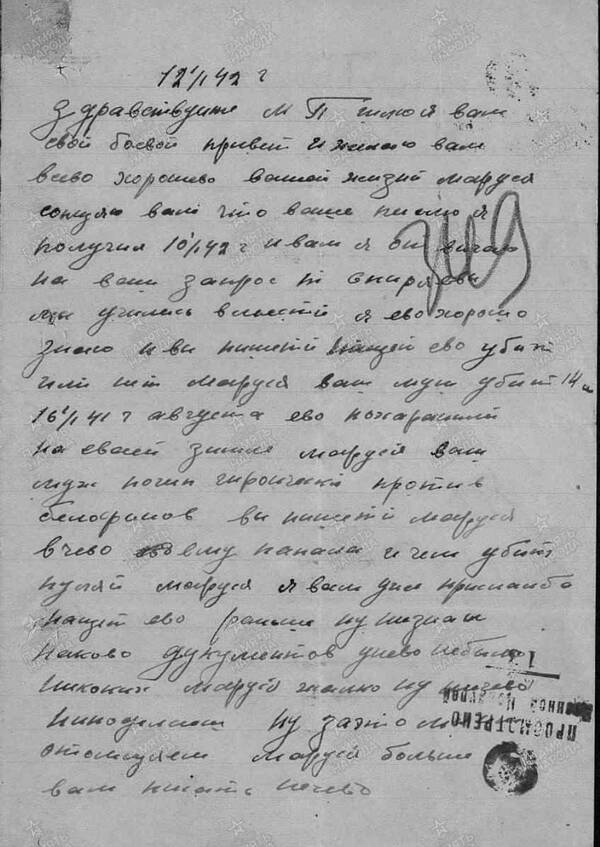 12/I 42 г
Здравствуйте М П шлю вам
свой боевой привет и желаю вам
всево хорошево вашей жизни Маруся
сообщаю вам что ваше письмо я
получил 10/I 42 г и вам я отвичаю
на ваш запрос т
мы училися вместе я ево хорошо
знаю и вы пишете нащет ево убит
или нет Маруся ваш муж убит 14 и
16/I 41 г августа ево похаранили
на своей земле Маруся ваш
муж погиб гироически против
белофинов вы пишете Маруся
в чево ему папала и чем убит
пуляй Маруся я вам уже
нащет ево раньше ну незнал
каково дукументов унево небыло
никаких Маруся жалко ну ничево
ниподелаеш ну зато мы
отомщаем Маруся больше
вам писать нечево
ПРОСМОТРЕНО
Военной Цензурой
ПАМЯТЬ НАРОДА